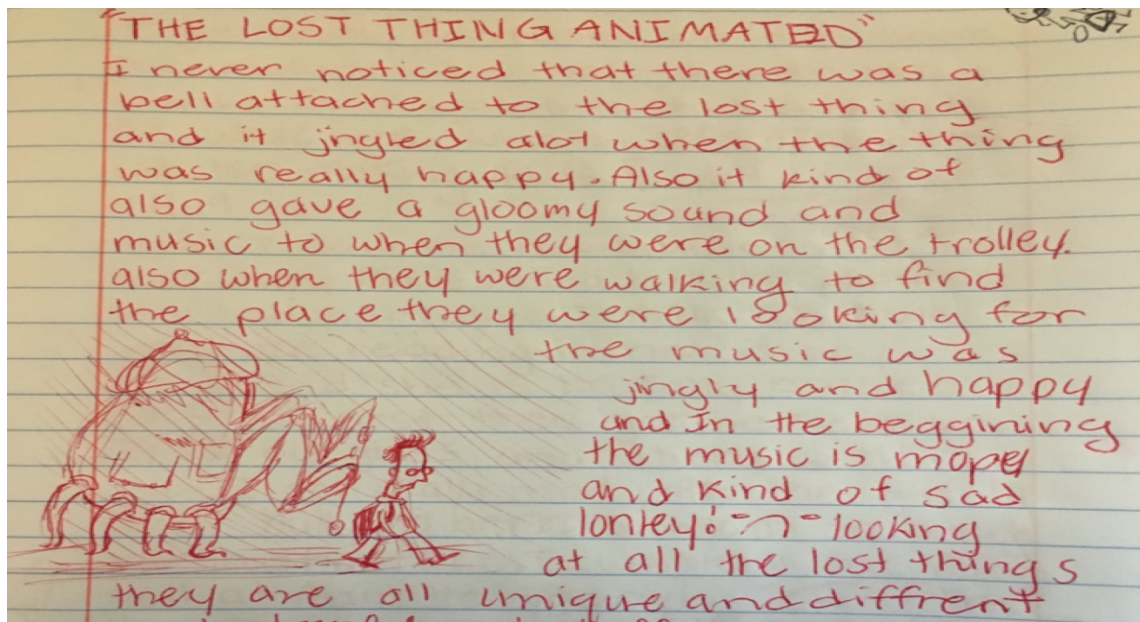 "THE LOST THING ANIMATED"
I never noticed that there was a
bell attached to the lost thing
and it jingled alot when the thing
was really happy. Also it kind of
also gave a gloomy sound and
music to when they were on the trolley.
also when they were walking to find
the place they were looking for
the music was
jingly and happy
and In the beggining
the music is mopey
and kind of sad
lonley! looking
at all the lost things
they are all unique and diffrent